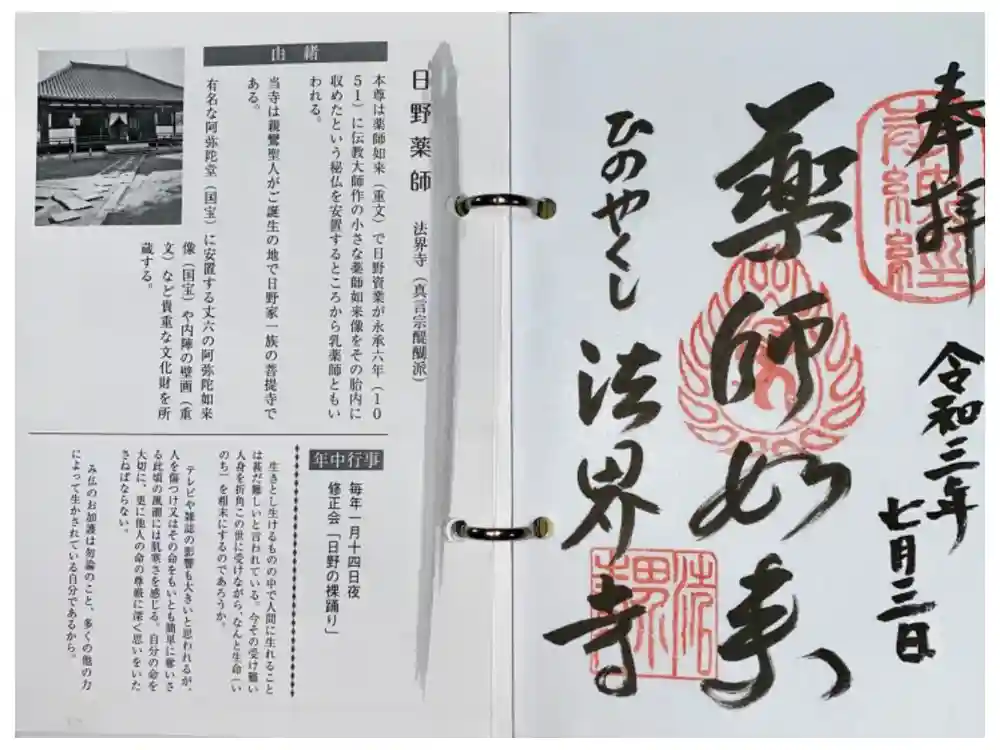 日野薬師 法界寺(真言宗醍醐派)
由緒
本尊は薬師如来(重文)で日野資業が永承六年(10
51)に伝教大師作の小さな薬師如来像をその胎内に
収めたという秘仏を安置するところから乳薬師ともい
われる。
当寺は親鸞聖人がご誕生の地で日野家一族の菩提寺で
ある。
有名な阿弥陀堂(国宝)に安置する丈六の阿弥陀如来
像(国宝)や内陣の壁画(重
文)など貴重な文化財を所
蔵する。
年中行事
毎年一月十四日夜
修正会「日野の裸踊り」
生きとし生けるものの中で人間に生れること
は甚だ難しいと言われている。今その受け難い
人身を折角この世に受けながら、なんと生命(い
のち)を粗末にするのであろうか。
テレビや雑誌の影響も大きいと思われるが、
人を傷つけ又はその命をもいとも簡単に奪いさ
る此頃の風潮には肌寒さを感じる。自分の命を
大切に、更に他人の命の尊厳に深く思いをいた
さねばならない。
み仏のお加護は勿論のこと、多くの他の力
によって生かされている自分であるから。
奉拝
令和三年
七月三日
薬師如来
ひのやくし
法界寺
法界寺